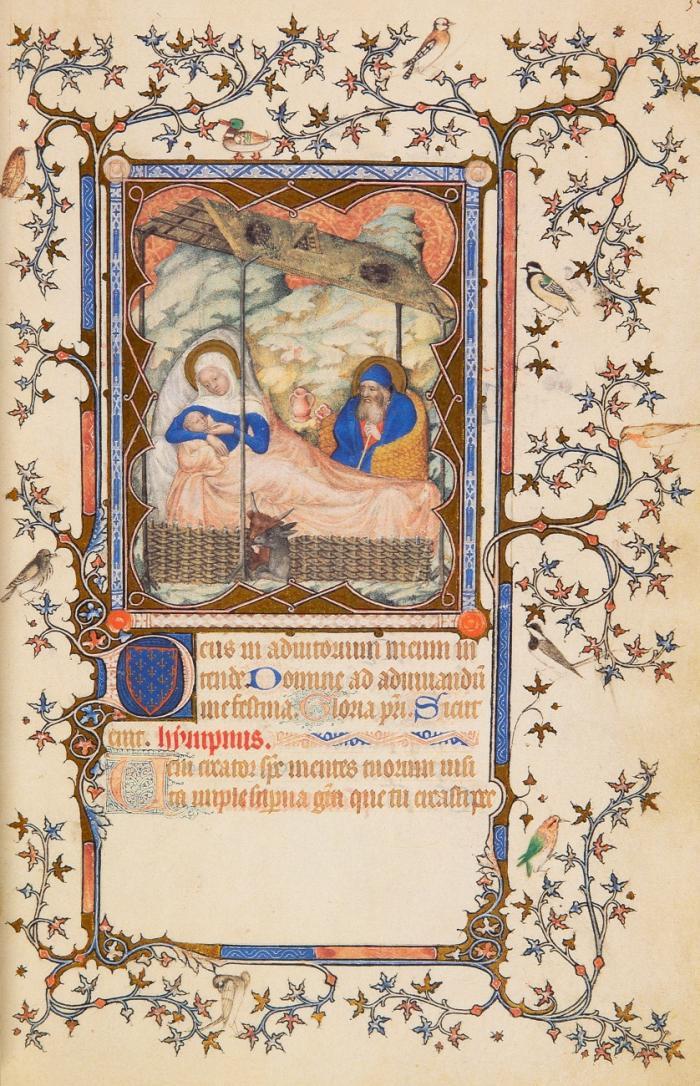 Deus in adiutorium meum in
tende Domine ad adiuuandū
me festina. Gloria pr̄i. Sicut
erat. hympnus.
Veni creator sp̄c mentes tuorum uisi
ta imple sup̄na gr̄a que tu creasti pec